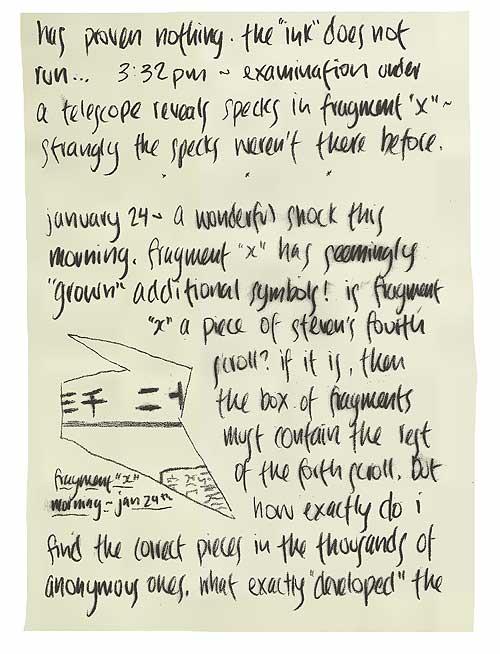 has proven nothing. the "ink" does not
run... 3:32 pm ~ examination under
a telescope reveals specks in fragment "x" ~
strangly the specks weren't there before.
january 24 ~ a wonderful shock this
morning. fragment "x" has seemingly
"grown" additional symbols! is fragment
"x" a piece of steven's fourth
scroll? if it is, then
the box of fragments
must contain the rest
of the forth scroll. but
how exactly do i
find the correct pieces in the thousands of
anonymous ones. what exactly "developed" the
二
fragment "x"
morning ~ jan 24th